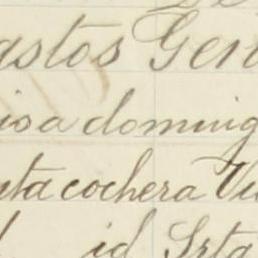 astos Gen
isa doming
nta cochera Vi
id Srta